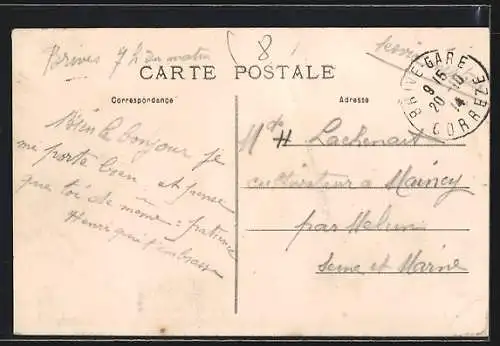 Brives 7 h du matin
8
CARTE POSTALE
Correspondance
Adresse
BRIVE-GARE
9 15
20 -10
14
CORREZE
Bien le bonjour je
me porte bien et pense
que toi de meme : patience
Henri qui t'embrasse
Lachenait
cultivateur a Maincy
par Melun
Seine et Marne